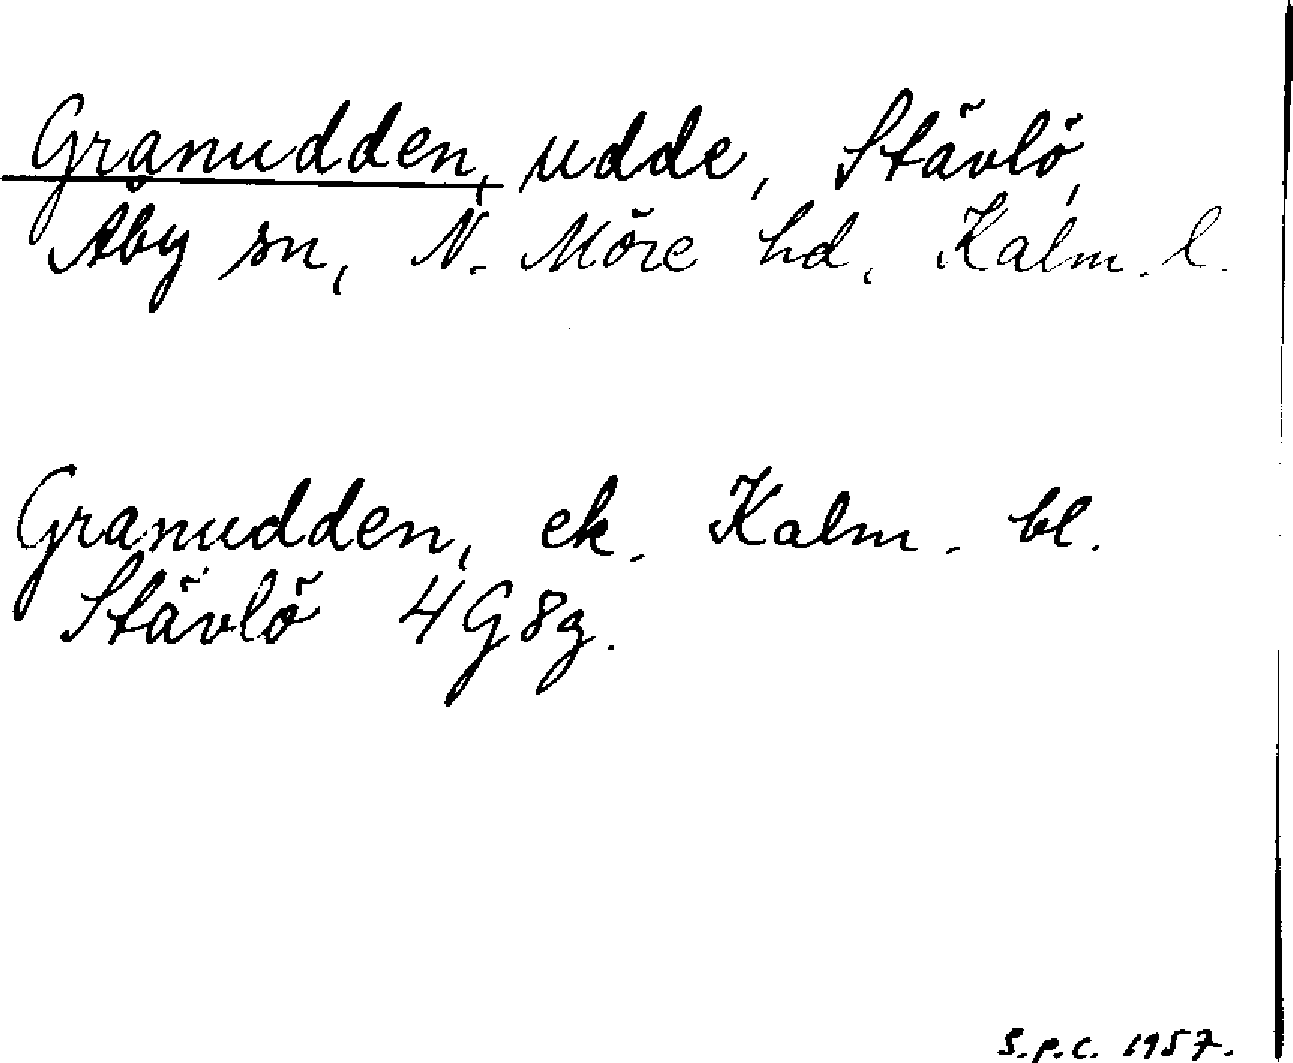 Granudden, udde, Stävlö,
Åby sn, N. Möre hd, Kalm. l.
Granudden, ek. Kalm. bl.
Stävlö 4G8g.
S.P.C. 1957.